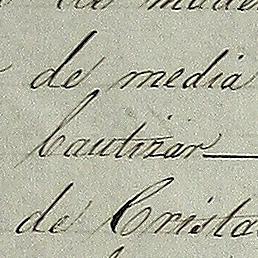 de media
bautizar
de Crista